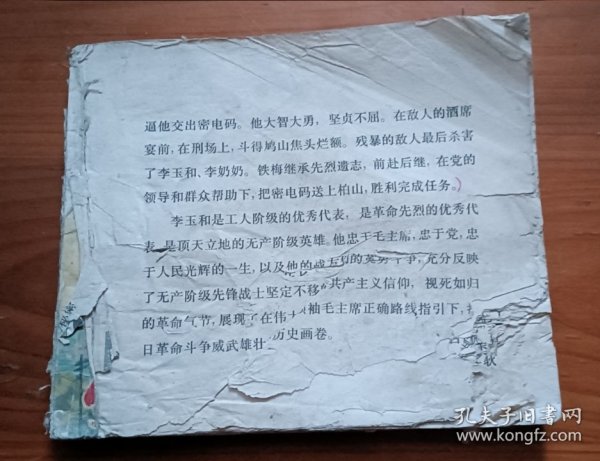 逼他交出密电码。他大智大勇，坚贞不屈。在敌人的酒席
宴前，在刑场上，斗得鸠山焦头烂额。残暴的敌人最后杀害
了李玉和、李奶奶。铁梅继承先烈遗志，前赴后继，在党的
领导和群众帮助下，把密电码送上柏山，胜利完成任务。
李玉和是工人阶级的优秀代表，是革命先烈的优秀代
表，是顶天立地的无产阶级英雄。他忠于毛主席，忠于党，忠
于人民光辉的一生，以及他的战友们的英勇斗争，充分反映
了无产阶级先锋战士坚定不移 共产主义信仰，视死如归
的革命气节，展现了在伟 袖毛主席正确路线指引下，
日革命斗争威武雄壮 历史画卷。
孔夫子旧书网
www.kongfz.com